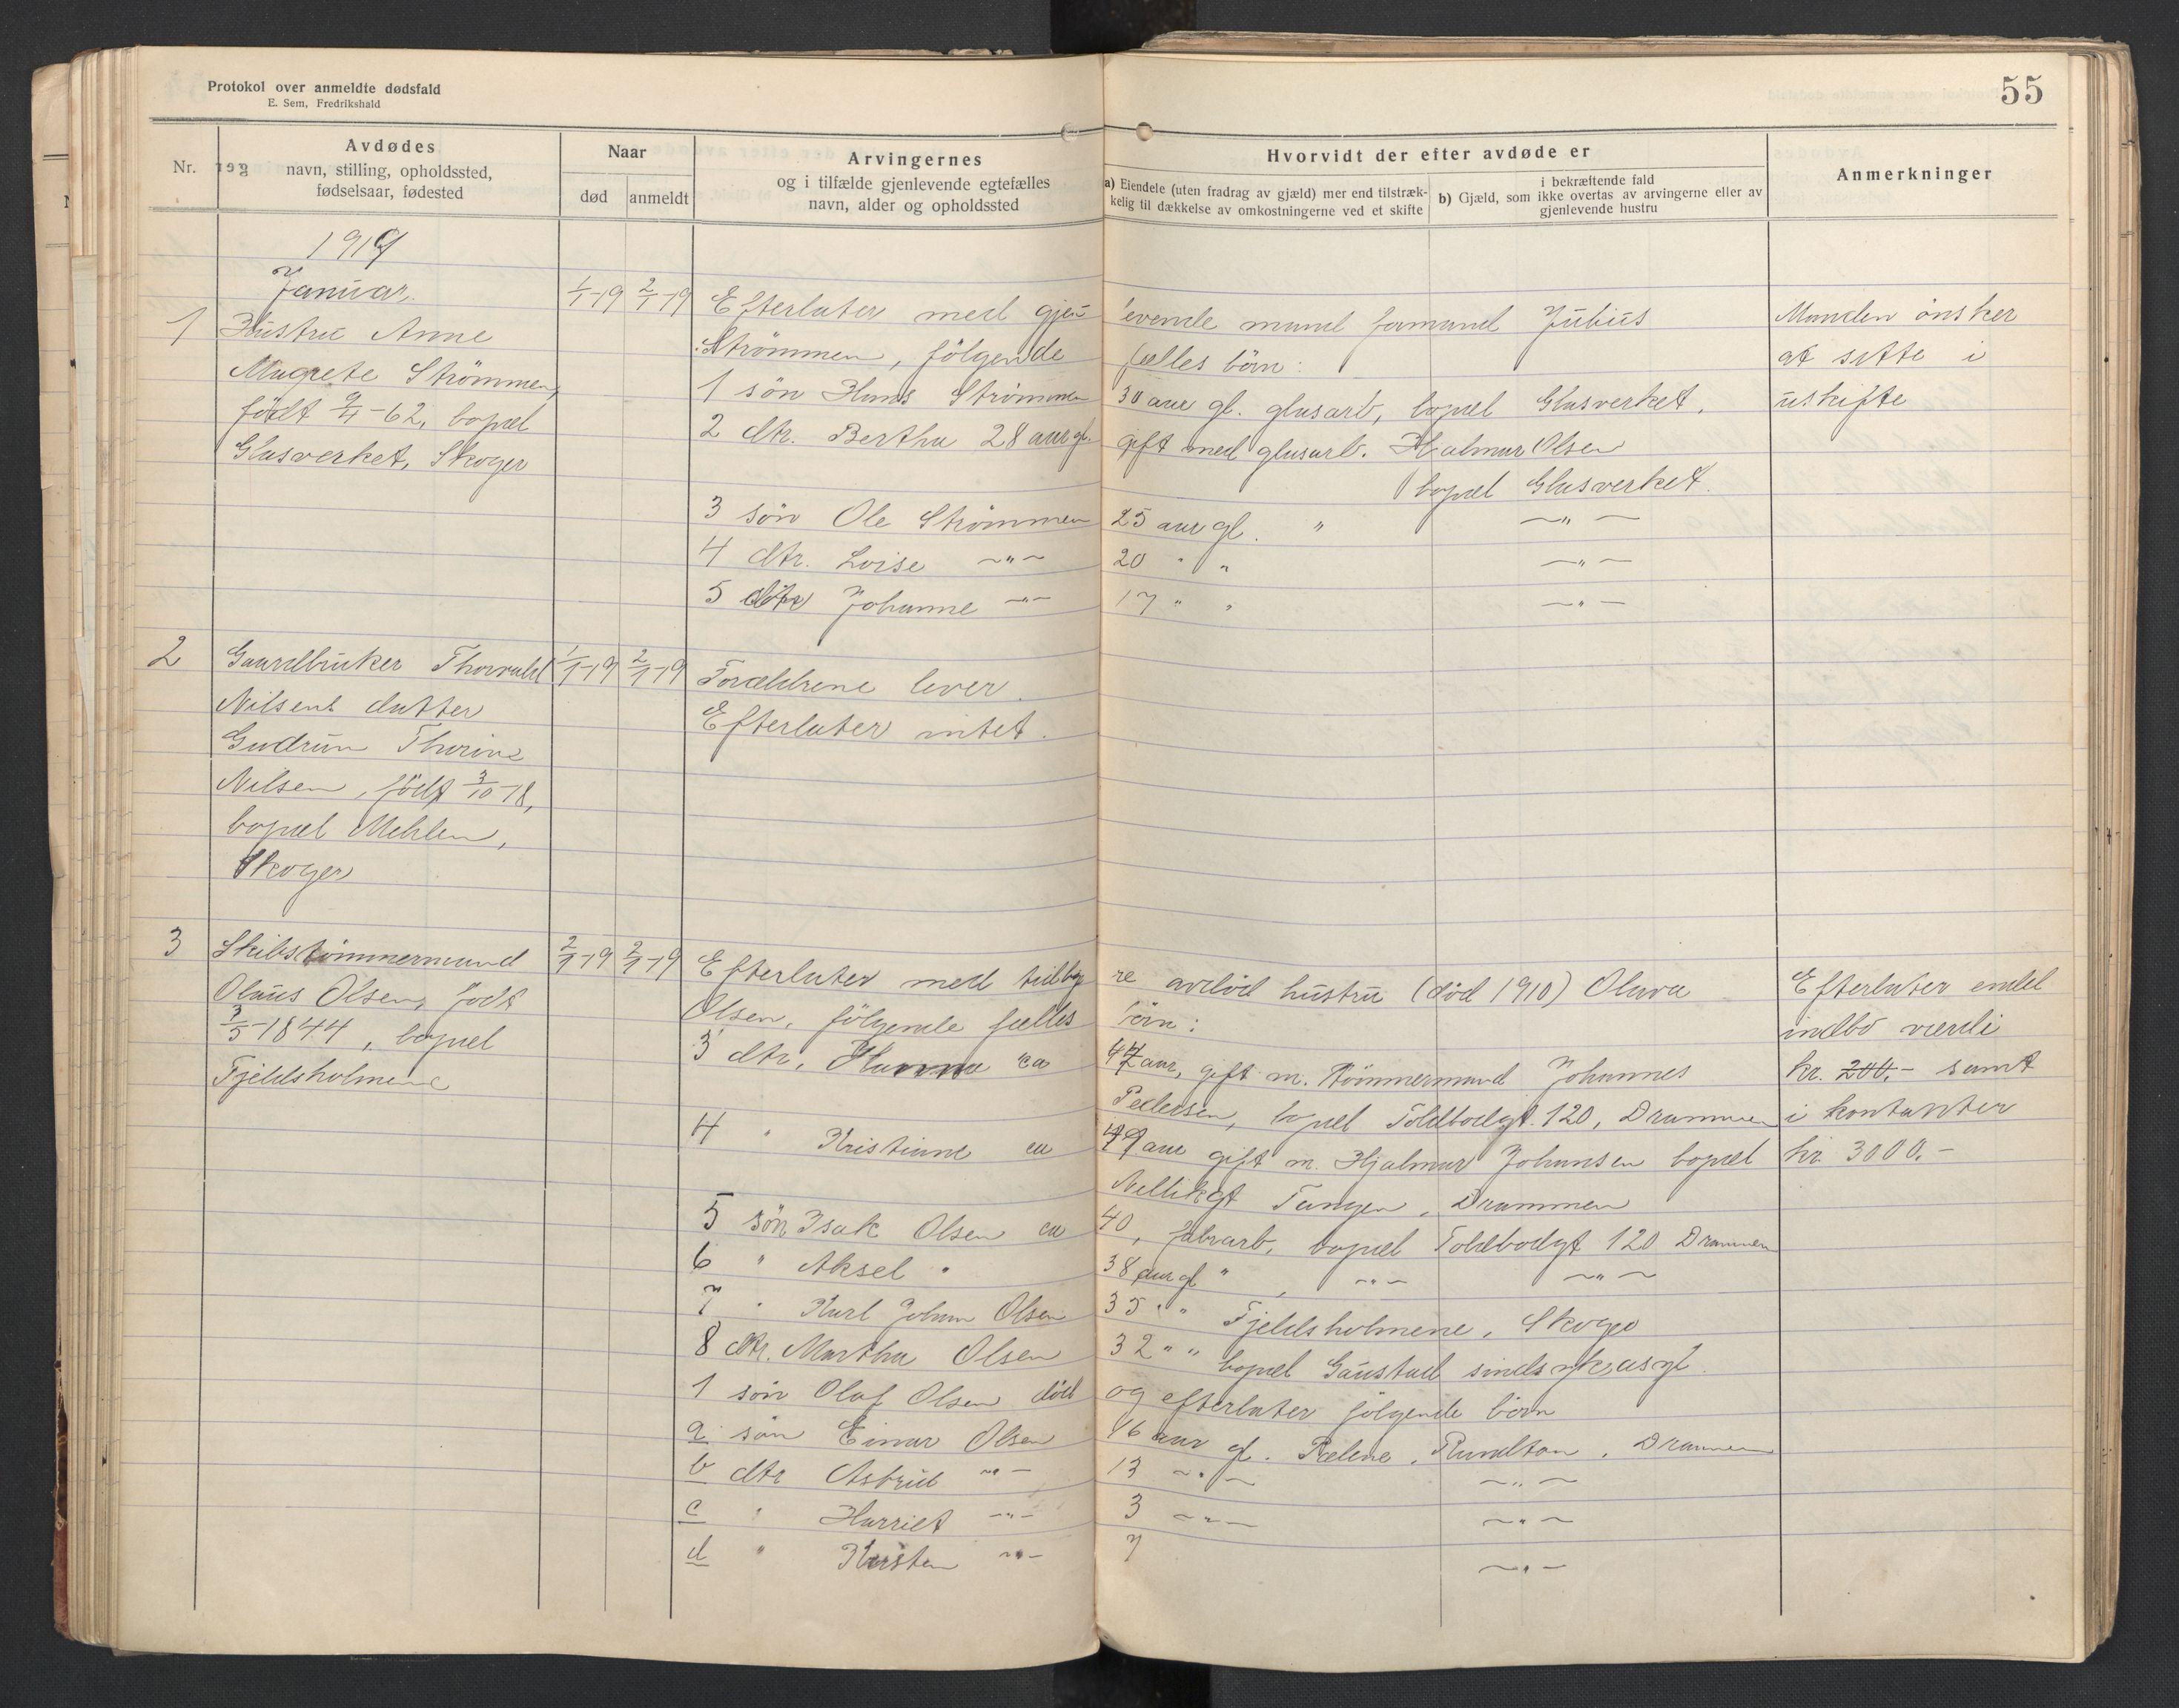 Protokol over anmeldte dødsfald
E. Sem, Fredrikshald
55
Nr.
Avdødes
navn, stilling, opholdssted,
fødselsaar, fødested
Naar
død
anmeldt
Arvingernes
og i tilfælde gjenlevende egtefælles
navn, alder og opholdssted
Hvorvidt der efter avdøde er
a) Eiendele (uten fradrag av gjæld) mer end tilstræk-
kelig til dækkelse av omkostningerne ved et skifte
i bekræftende fald
b) Gjæld, som ikke overtas av arvingerne eller av
gjenlevende hustru
Anmerkninger
1919
Januar.
1 Hustru Anne
Magrete Strømmen,
født 9/4-62, bopæl
Glasverket, Skoger
1/1-19 2/1-19
Efterlater med gjen levende mand formand Julius
Strømmen, følgende fælles børn:
1 søn Hans Strømmen 30 aar gl. glasarb, bopæl Glasverket.
2 dtr. Bertha 28 aar gl. gift med glasarb. Hjalmar Olsen
bopæl Glasverket.
3 søn Ole Strømmen 25 aar gl. " —"—
4 dtr. Loise —"— 20 " " —"—
5 dtr Johanne —"— 17 " " —"—
Manden ønsker
at sitte i
uskifte
2 Gaardbruker Thorvald
Nilsens datter
Gudrun Thorine
Nilsen, født 3/10-18,
bopæl Mehlen,
Skoger
1/1-19 2/1-19
Forældrene lever.
Efterlater intet.
3 Skibstømmermand
Olaus Olsen, født
3/5-1844, bopæl
Fjeldsholmene
2/1-19 2/1-19
Efterlater med tidlige re avdød hustru (død 1910) Olava
Olsen, følgende fælles børn:
3 dtr. Hanna ca 47 aar, gift m. tømmermand Johannes
Pedersen, bopæl Toldbodgt. 120, Drammen
4 " Kristiane ca 49 aar gift m. Hjalmar Johansen bopæl
Nellikgt Tangen, Drammen
5 søn Isak Olsen ca 40, fabrarb, bopæl Toldbodgt 120 Drammen
6 " Aksel " 38 aar gl " , —"— —"—
7 " Karl Johan Olsen 35 " " Fjeldsholmene, Skoger
8 dtr. Martha Olsen 32 " " bopæl Gaustad sindsykeasyl.
1 søn Olaf Olsen død og efterlater følgende børn
a søn Einar Olsen 16 aar gl. Pælene, Rundtom, Drammen
b dtr Astrid —"— 13 —"— —"—
c " Harriet —"— 3 —"— —"—
d " Kirsten —"— 7 —"—
Efterlater endel
indbo værdi
kr. 200,- samt
i kontanter
kr 3000.-